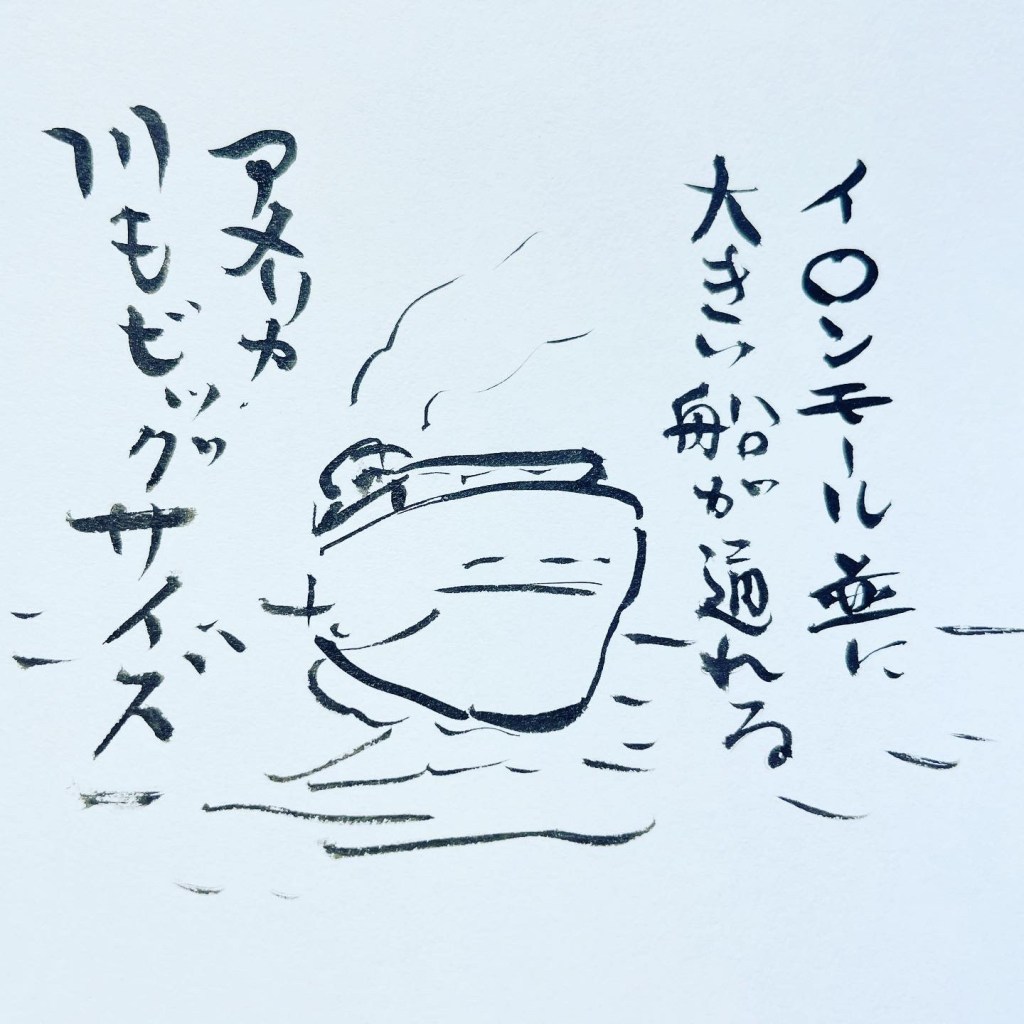 イ〇ンモール並に
大きい船が通れる
アメリカ
川もビッグサイズ